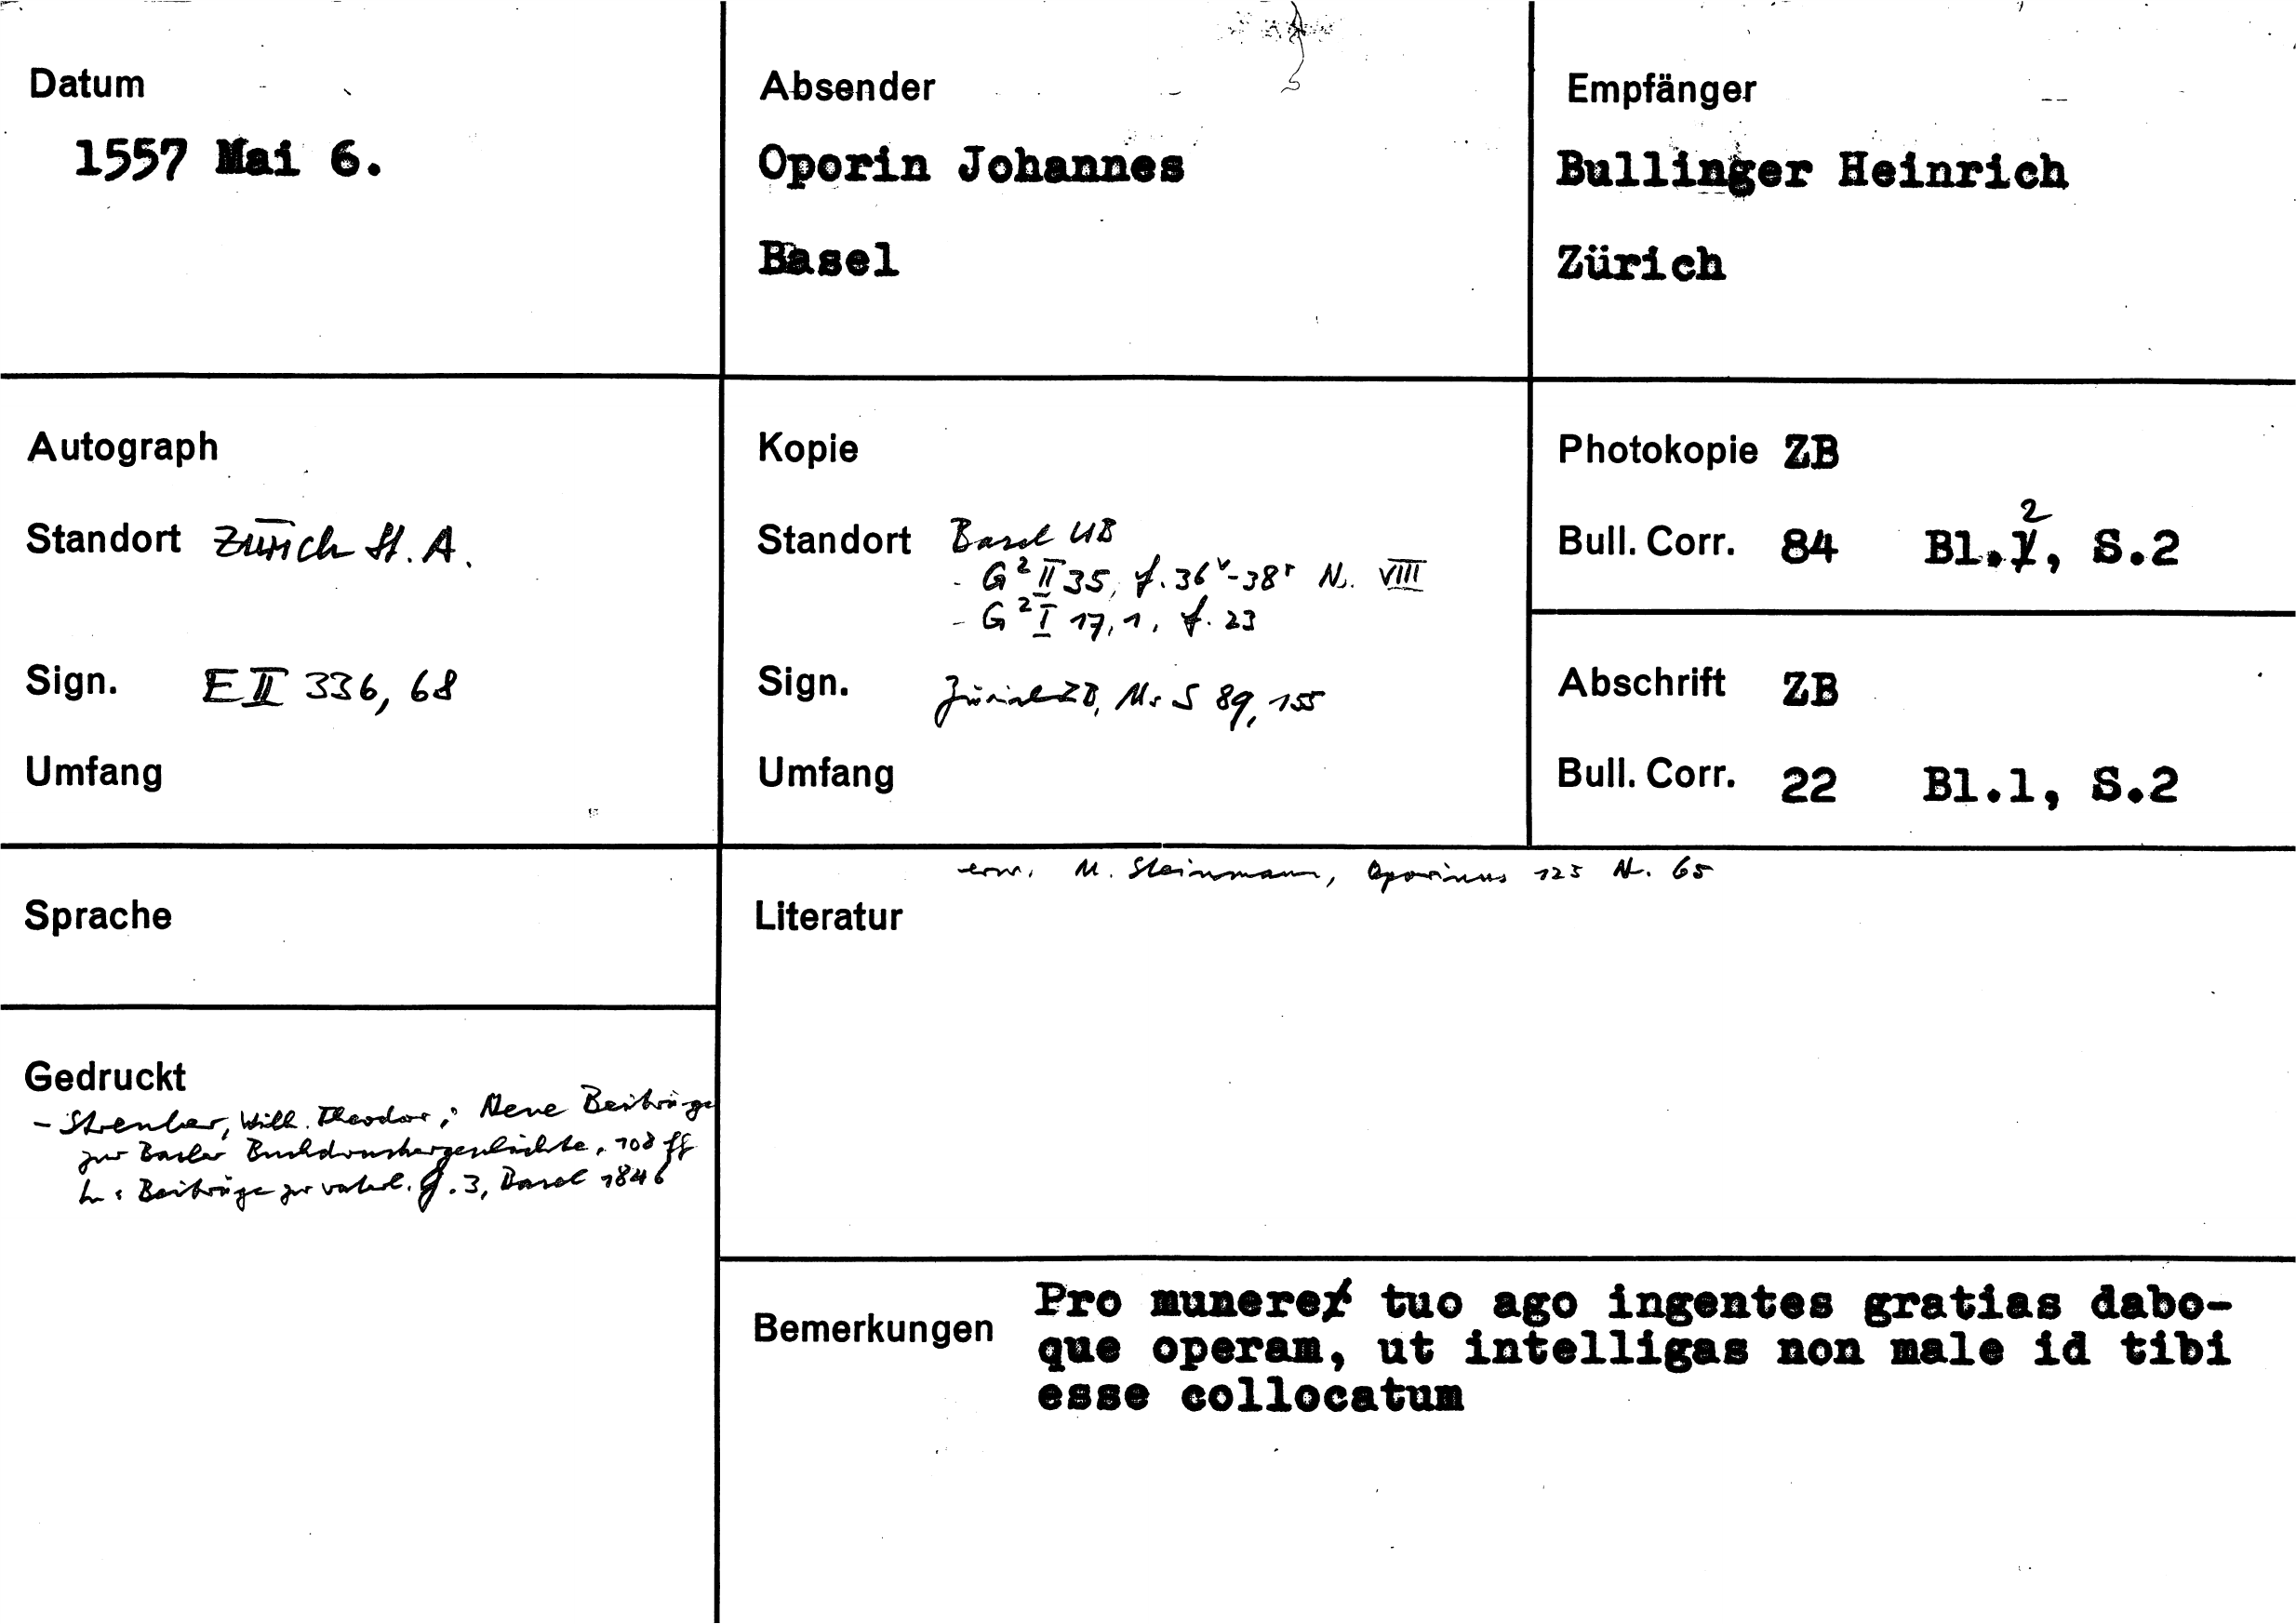 Datum
1557 Mai 6.
Absender
Oporin Johannes
Basel
Empfänger
Bullinger Heinrich
Zürich
Autograph
Standort Zürich St. A.
Sign. E II 336, 68
Umfang
Kopie
Standort Basel UB
- G² II 35, f. 36ᵛ-38ʳ N. VIII
- G² I 17,1, f. 23
Sign. Zürich ZB, Ms S 89, 155
Umfang
Photokopie ZB
Bull. Corr. 84 Bl. 2, S.2
Abschrift ZB
Bull. Corr. 22 Bl.1, S.2
Sprache
erw. M. Steinmann, Oporinus 125 N. 65
Literatur
Gedruckt
- Streuber, Wilh. Theodor; Neue Beiträge
zur Basler Buchdruckergeschichte, 108 ff
In: Beiträge zur vaterl. G. 3, Basel 1846
Bemerkungen
Pro munere tuo ago ingentes gratias dabo-
que operam, ut intelligas non male id tibi
esse collocatum